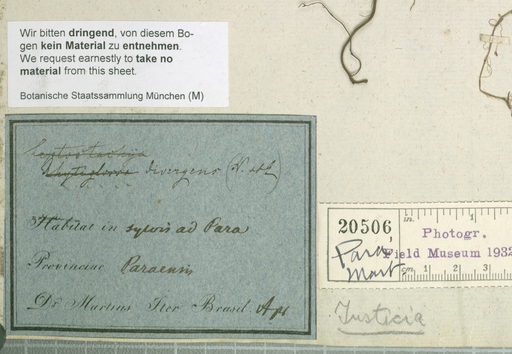 Wir bitten dringend, von diesem Bo-
gen kein Material zu entnehmen.
We request earnestly to take no
material from this sheet.
Botanische Staatssammlung München (M)
Leptostachya
Rhytiglossa divergens (N. ab E.)
Habitat in sylvis ad Para
Provinciae Paraensis
Dr. Martius Iter Brasil. Apr
20506
Para,
Mart.
in. 1
Photogr.
Field Museum 1932
cm 1 2 3
Justicia